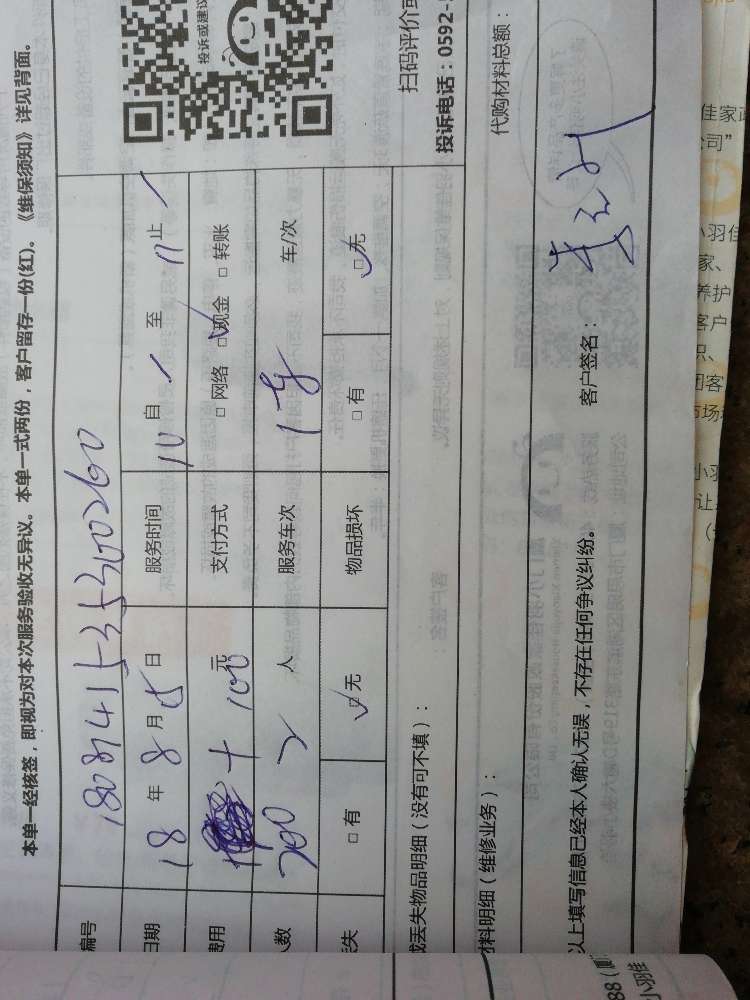 本单一经核签，即视为对本次服务验收无异议。本单一式两份，客户留存一份(红)。《维保须知》详见背面。
投诉或建议
编号
日期 18 年 8 月 日 服务时间 10 自 / 至 11 止 /
费用 + 100 元 支付方式 □ 网络 □ 现金 ✓ □ 转账
人数 200 2 人 服务车次 1 车/次
丢失 □ 有 □ 无 ✓ 物品损坏 □ 有 □ 无 ✓
或丢失物品明细（没有可不填）：
扫码评价或
投诉电话：0592-
材料明细（维修业务）：
代购材料总额：
以上填写信息已经本人确认无误，不存在任何争议纠纷。
客户签名：
佳家政
公司”
小羽佳
家、
养护
客户
识、
团客
市场
小羽
让
88（
小羽佳